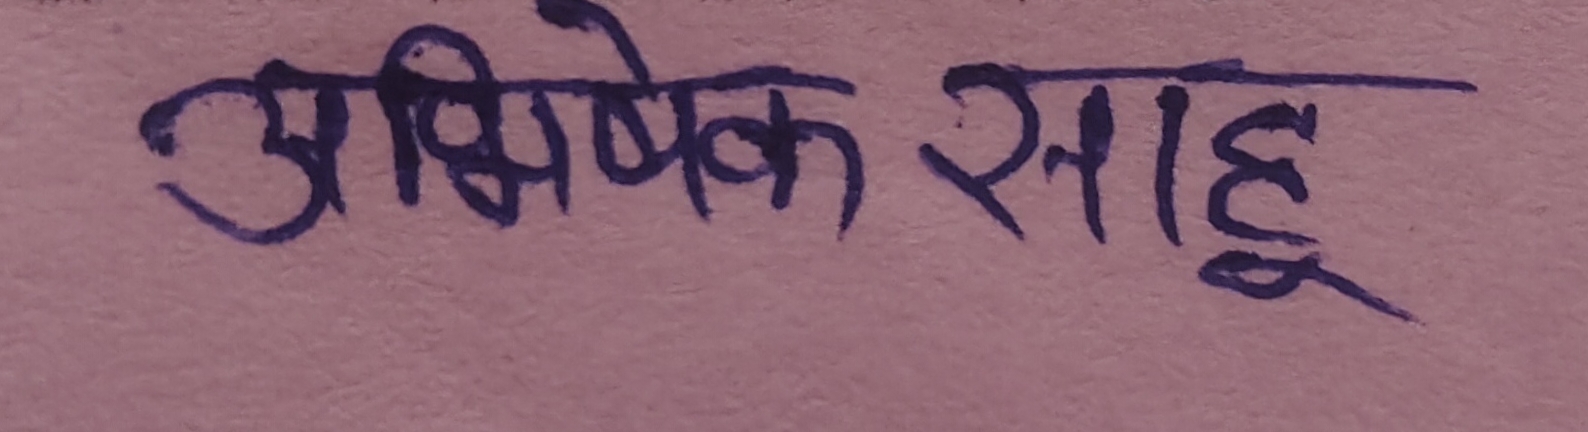 अभिषेक साहू